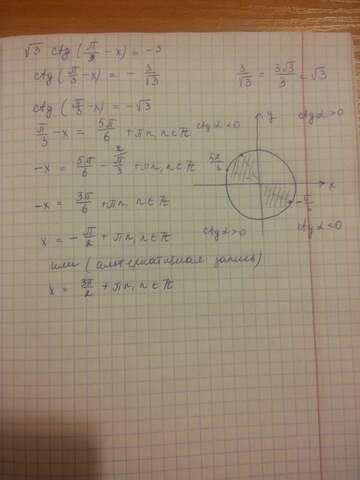 √3 ctg (π/3 − x) = −3
ctg (π/3 − x) = − 3/√3
3/√3 = 3√3/3 = √3
ctg (π/3 − x) = −√3
π/3 − x = 5π/6 + πn, n∈Z
−x = 5π/6 − π/3 + πn, n∈Z
2
−x = 3π/6 + πn, n∈Z
x = − π/2 + πn, n∈Z
или (альтернативная запись)
x = 3π/2 + πn, n∈Z
ctg α < 0
y
ctg α > 0
5π/6
x
−π/6
ctg α > 0
ctg α < 0